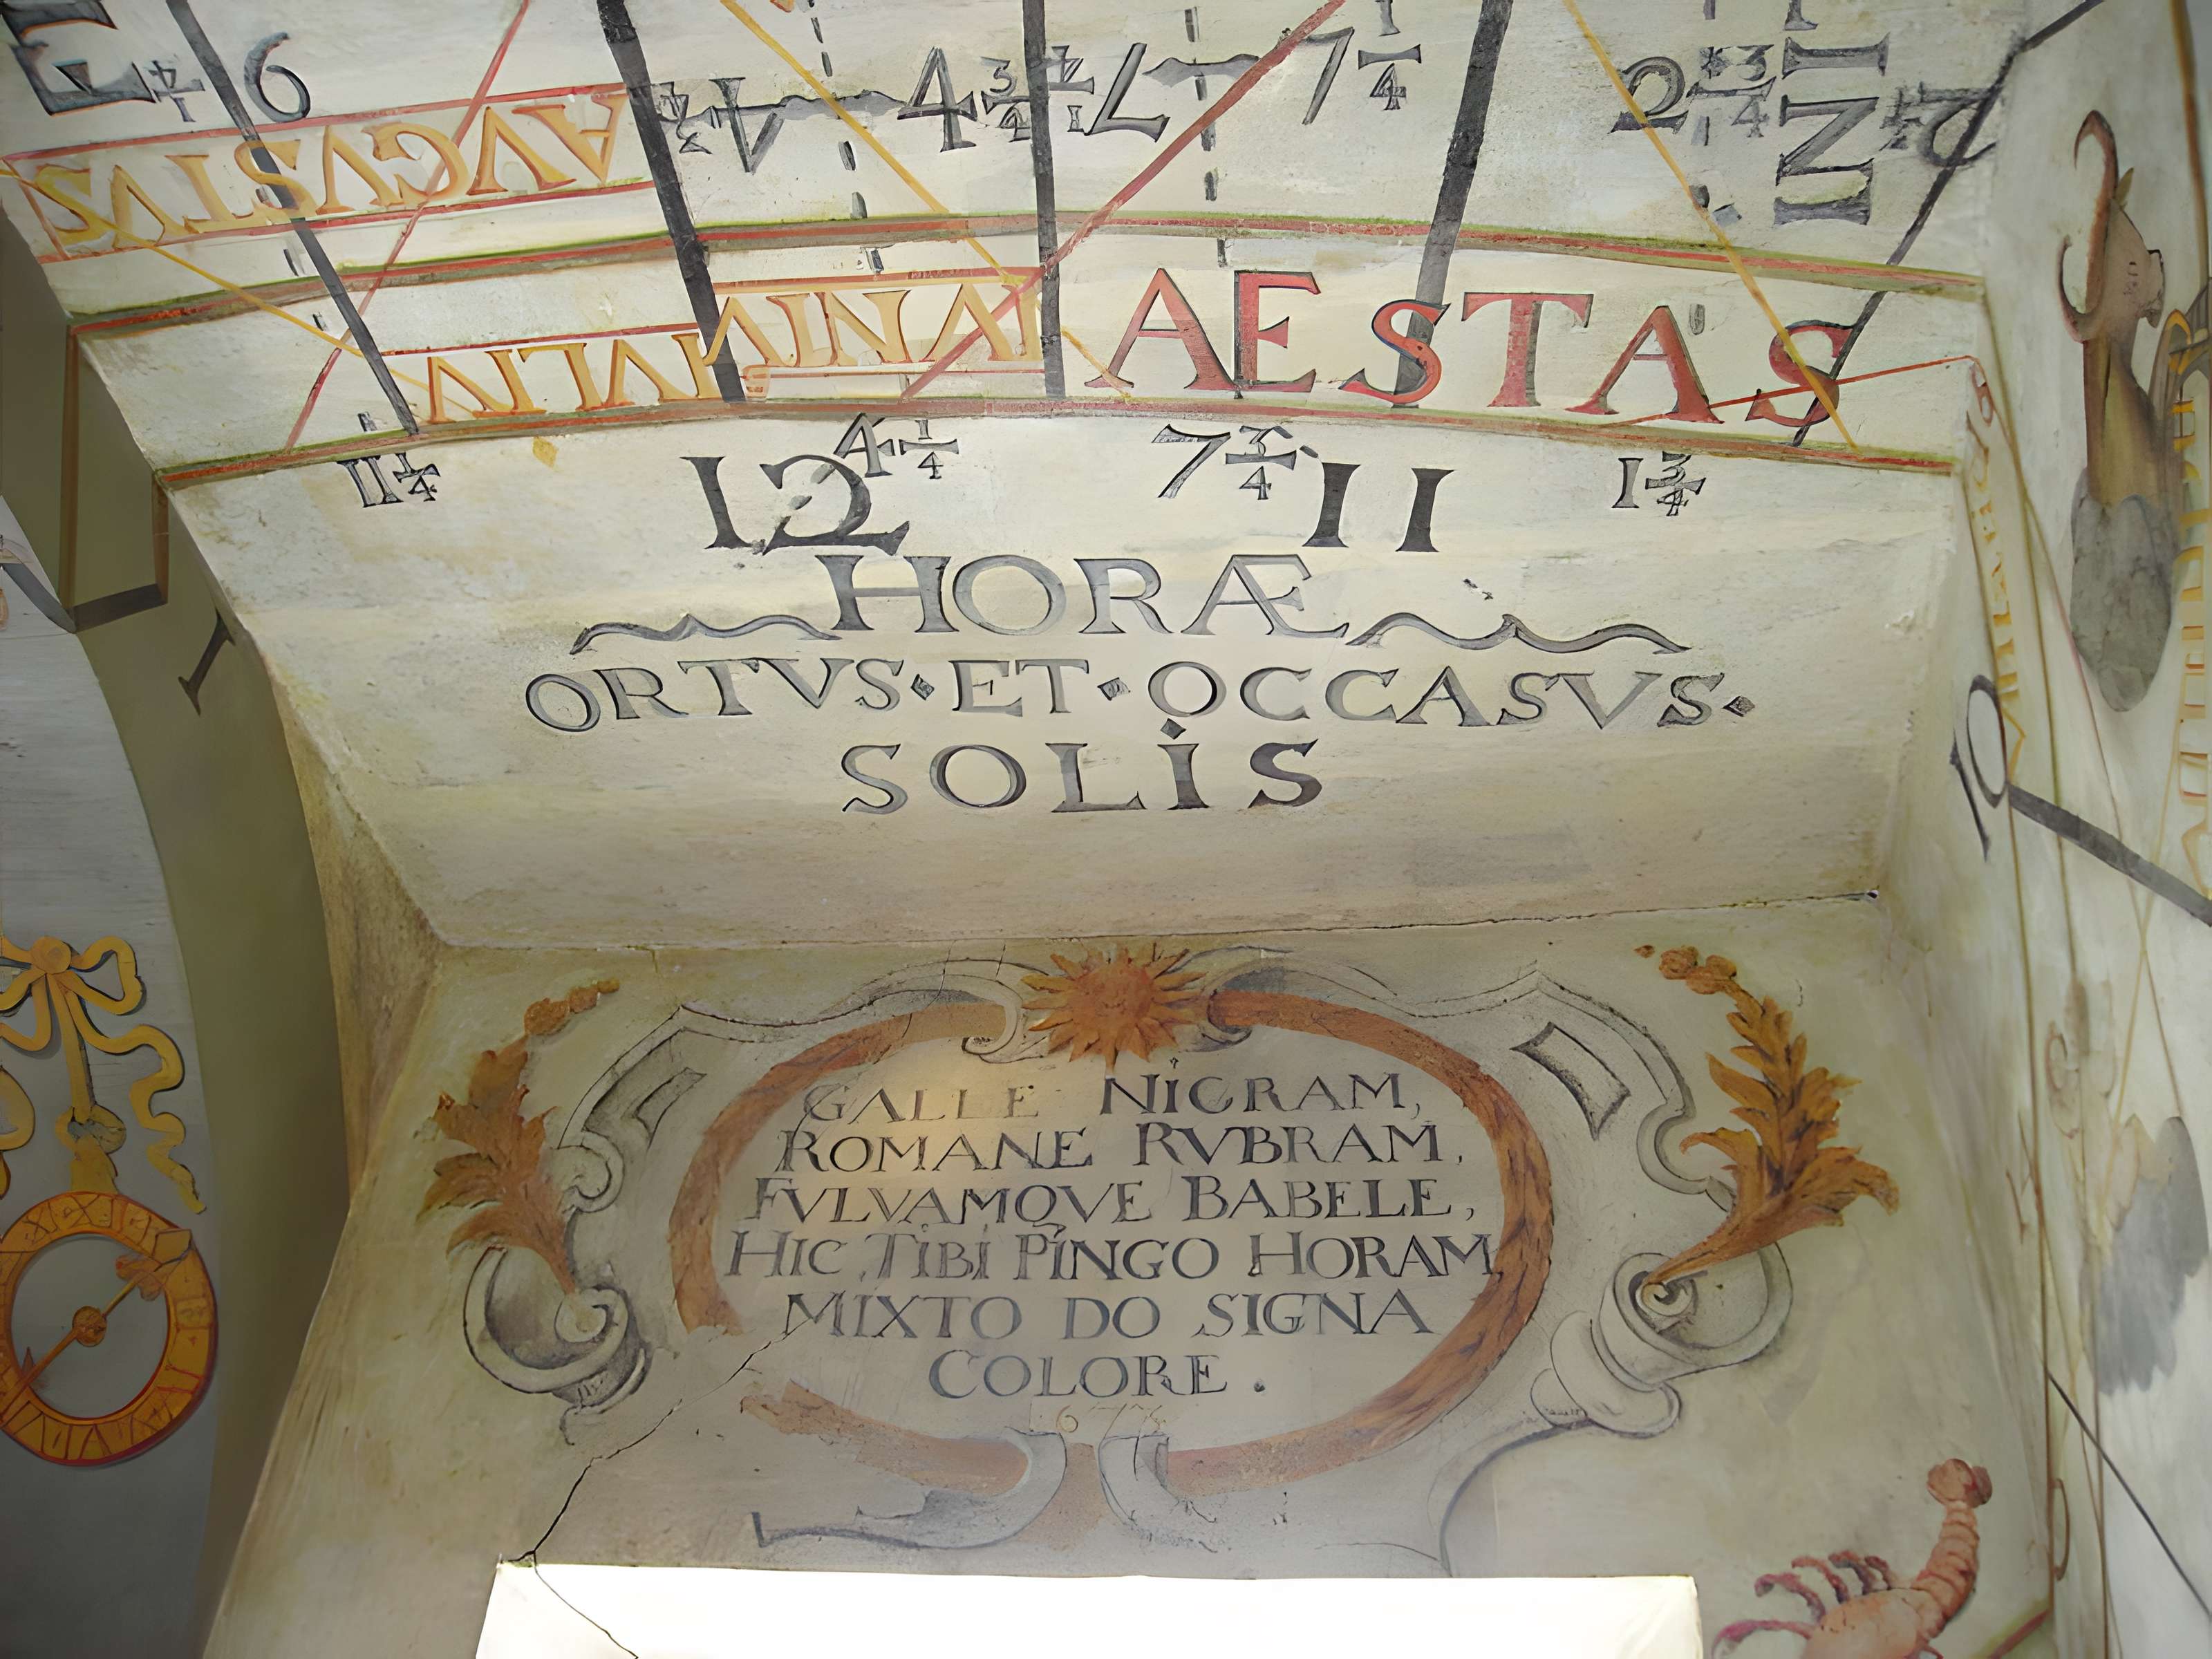 6
AVGVSTVS
4 3/4
7 1/4
2 3/4
IVNIV
IVLIV
AESTAS
11 1/4
4 1/4
7 3/4
1 3/4
12
11
HORÆ
ORTVS·ET·OCCASVS·
SOLIS
10
GALLE NIGRAM,
ROMANE RVBRAM,
FVLVAMQVE BABELE,
HIC TIBI PINGO HORAM,
MIXTO DO SIGNA
COLORE.